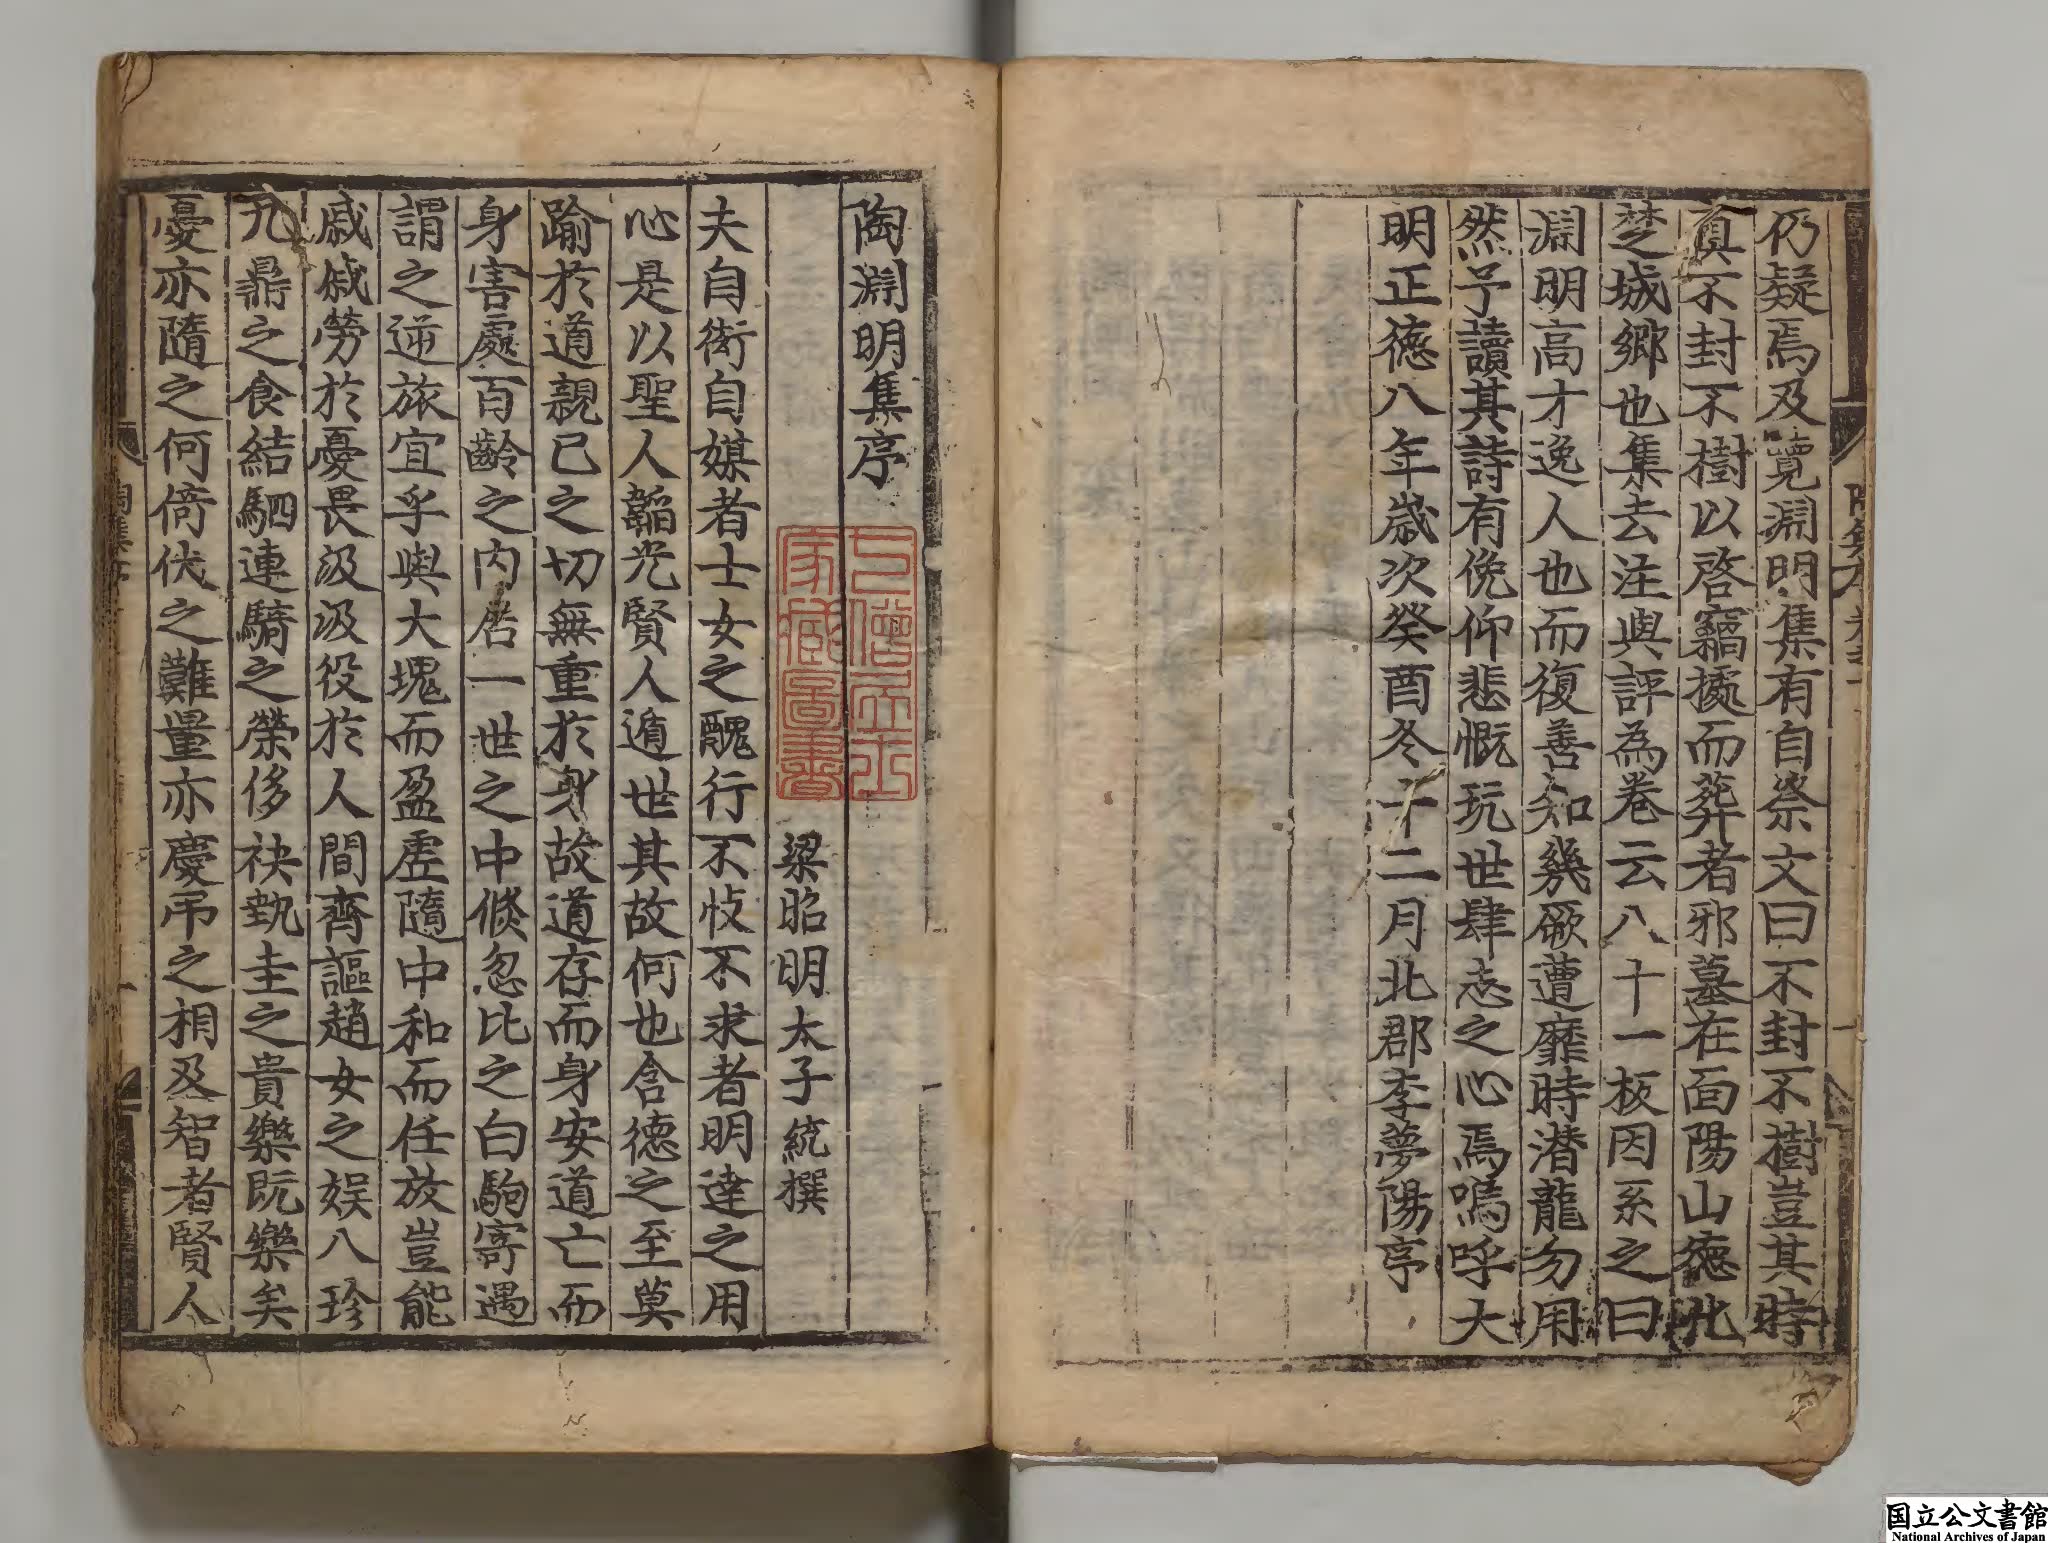 仍疑焉及覽淵明集有自祭文曰不封不樹豈其時
真不封不樹以啓竊據而葬者邪墓在面陽山德化
楚城鄉也集去注與評為卷云八十一板因系之曰
淵明高才逸人也而復善知幾厥遭靡時潜龍勿用
然予讀其詩有俛仰悲慨玩世肆志之心焉嗚呼大
明正德八年歲次癸酉冬十二月北郡李夢陽序
陶淵明集序
梁昭明太子統撰
夫自衒自媒者士女之醜行不忮不求者明達之用
心是以聖人韜光賢人遁世其故何也含德之至莫
踰於道親已之切無重於身故道存而身安道亡而
身害處百齡之內居一世之中倐忽比之白駒寄遇
謂之逆旅宜乎與大塊而盈虛隨中和而任放豈能
戚戚勞於憂畏汲汲役於人間齊謳趙女之娛八珍
九鼎之食結駟連騎之榮侈袂執圭之貴樂既樂矣
憂亦隨之何倚伏之難量亦慶吊之相及智者賢人
国立公文書館
National Archives of Japan